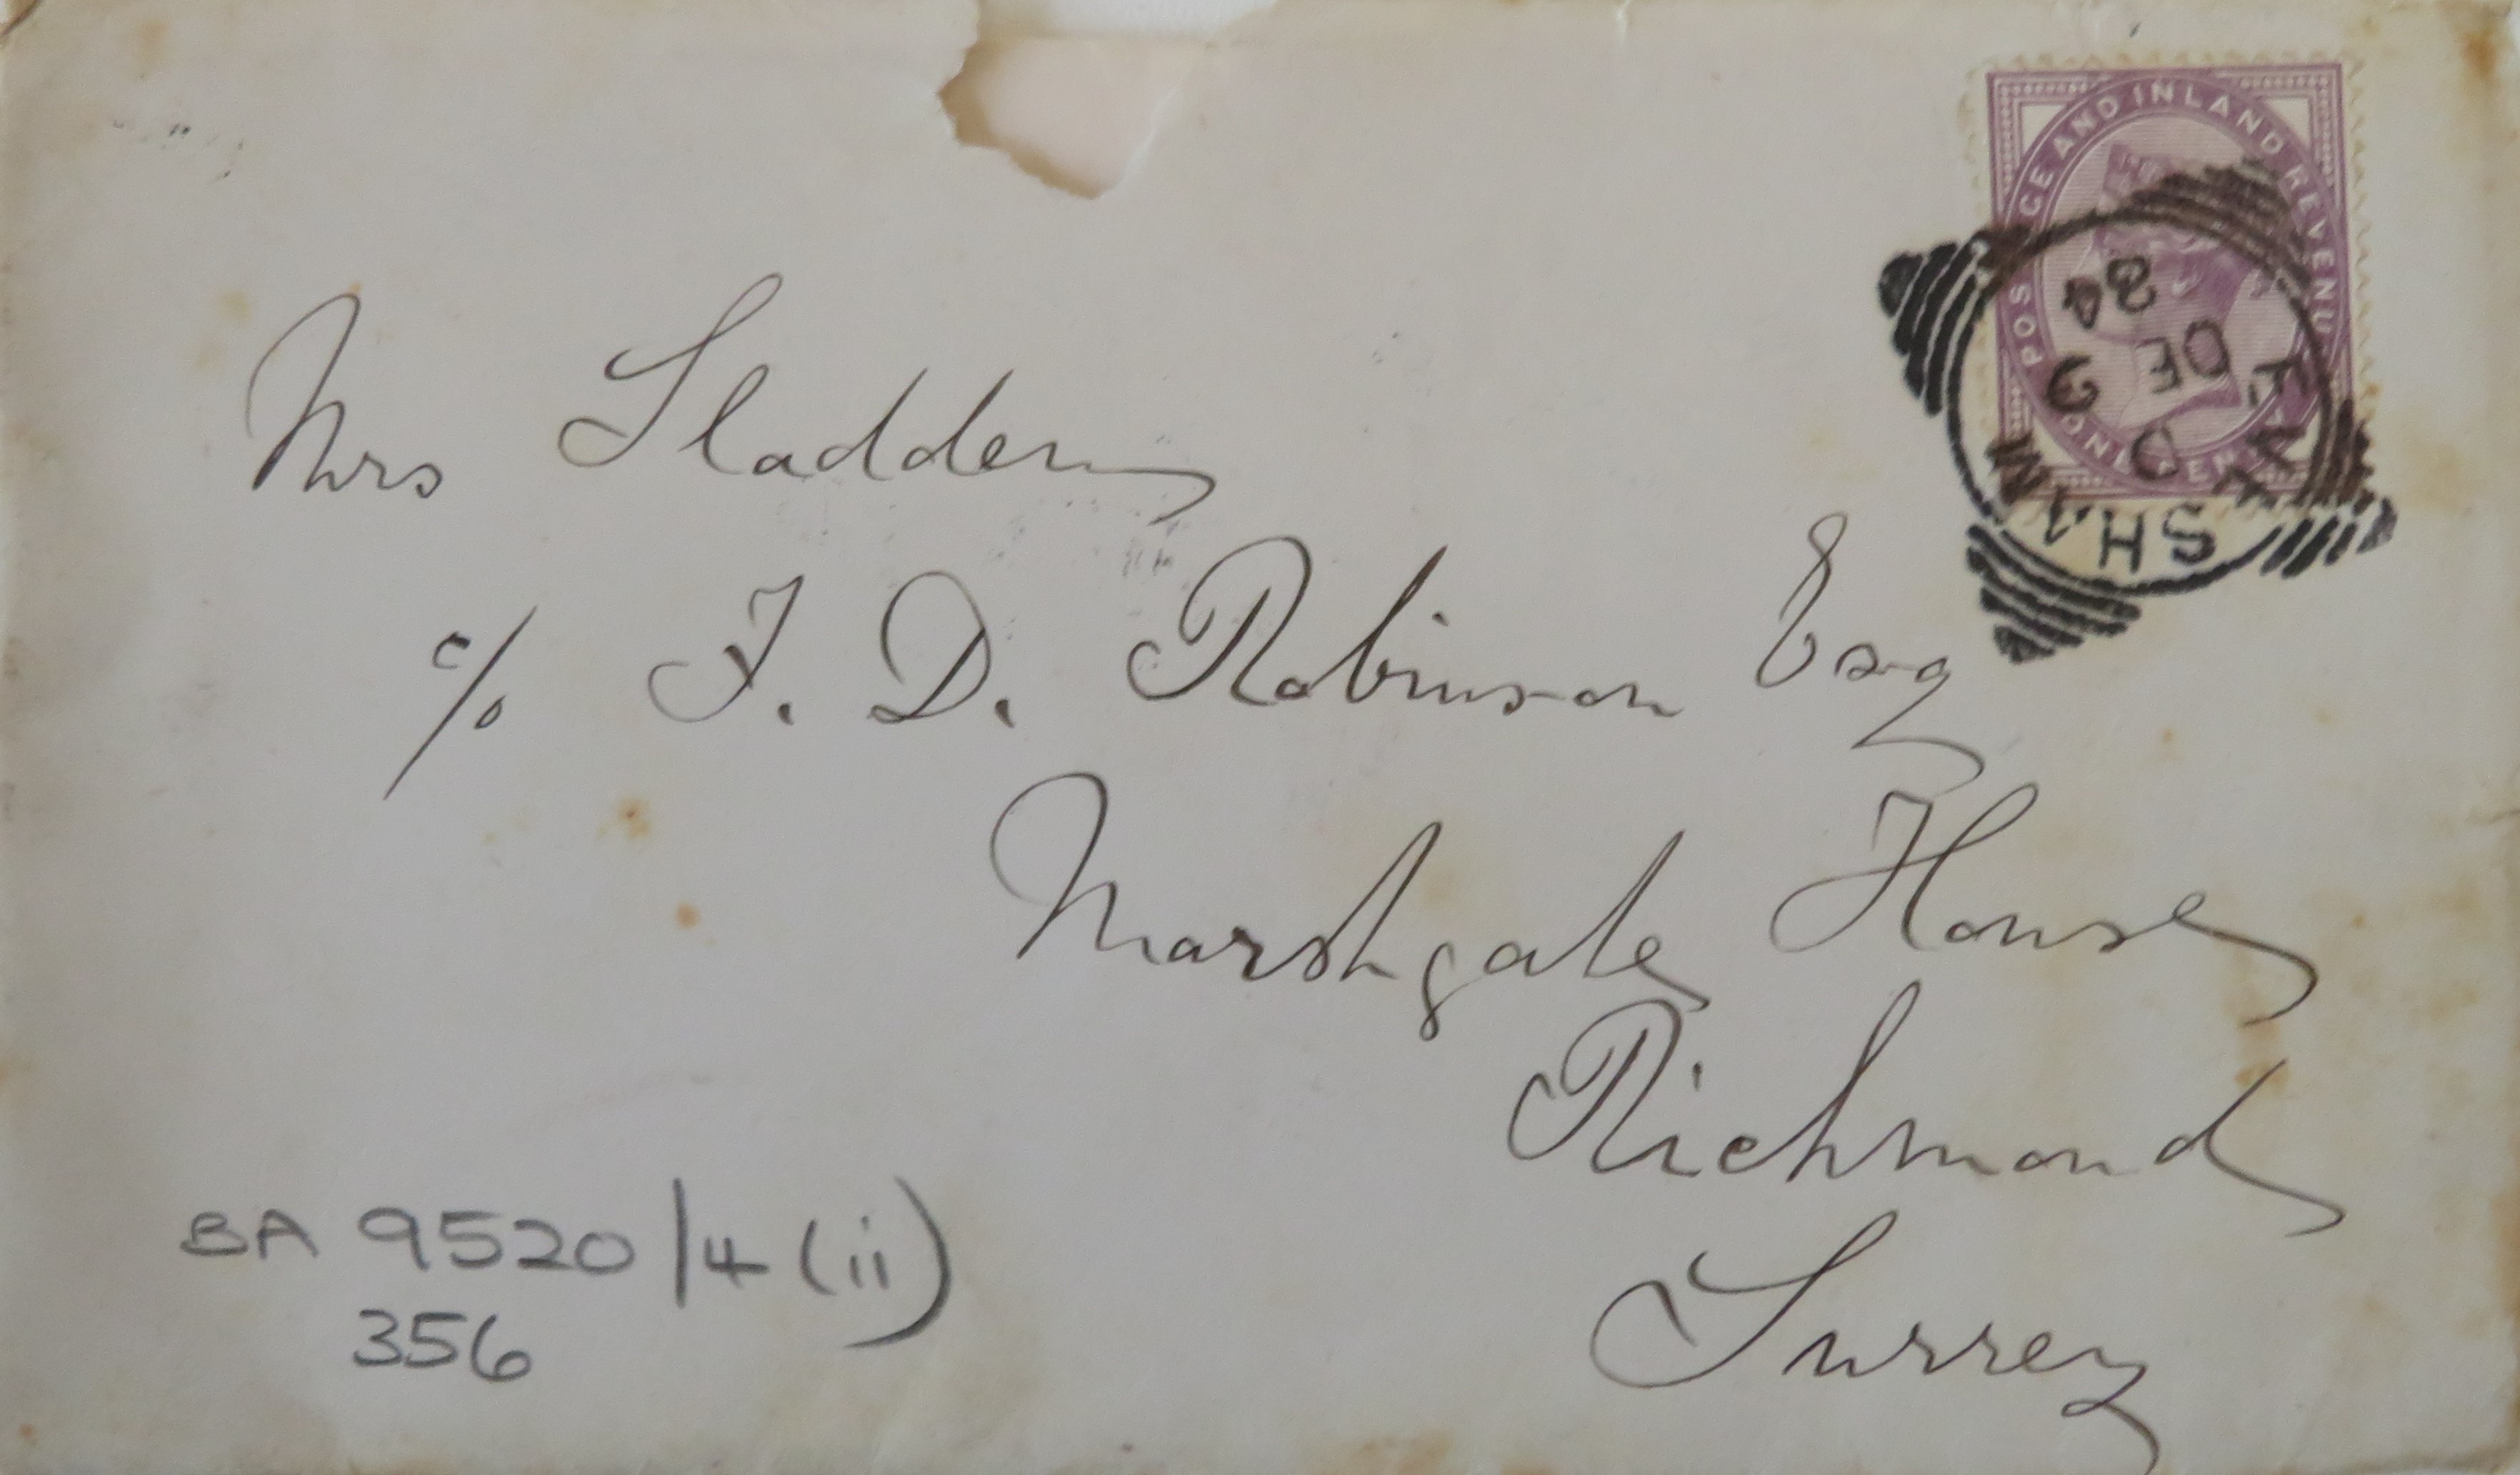 POSTAGE AND INLAND REVENUE
ONE PENNY
EVESHAM
Mrs Sladden
c/o F. D. Robinson Esq
Marshgate House
Richmond
Surrey
BA 9520/4 (ii)
356